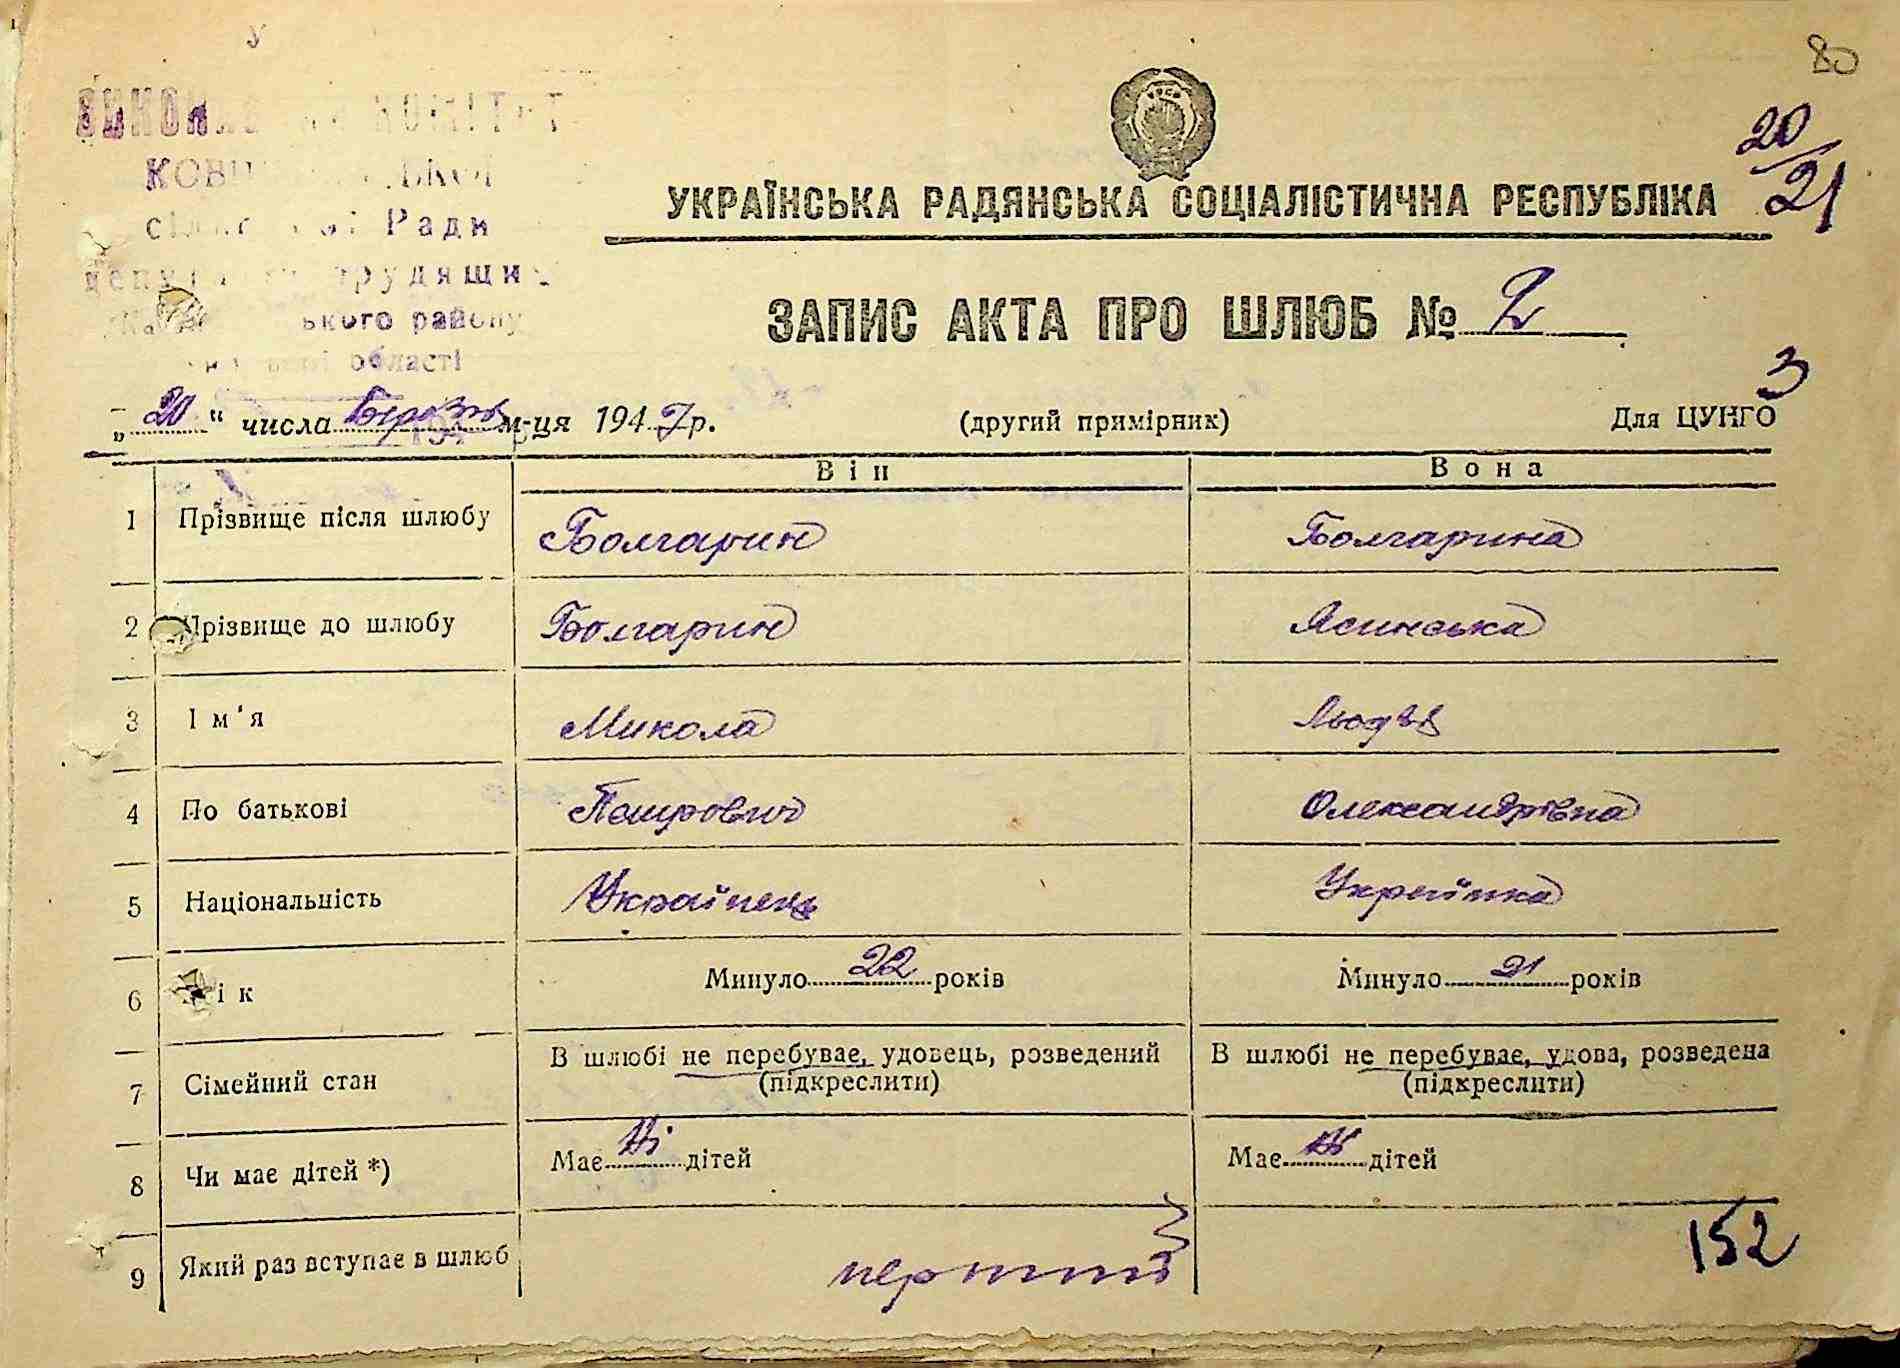 80
20/21
КОМІТЕТ
Ради
трудящих
ського району
області
УКРАЇНСЬКА РАДЯНСЬКА СОЦІАЛІСТИЧНА РЕСПУБЛІКА
ЗАПИС АКТА ПРО ШЛЮБ № 2
3
„20“ числа Березня м-ця 1947 р. (другий примірник) Для ЦУНГО
Він Вона
1 Прізвище після шлюбу Болгарин Болгарина
2 Прізвище до шлюбу Болгарин Ясинська
3 Ім'я Микола
4 По батькові Петрович Олександрівна
5 Національність Українець Українка
6 Вік Минуло 22 років Минуло 21 років
7 Сімейний стан В шлюбі не перебуває, удовець, розведений (підкреслити) В шлюбі не перебуває, удова, розведена (підкреслити)
8 Чи має дітей *) Має Ні дітей Має Ні дітей
9 Який раз вступає в шлюб перший
152